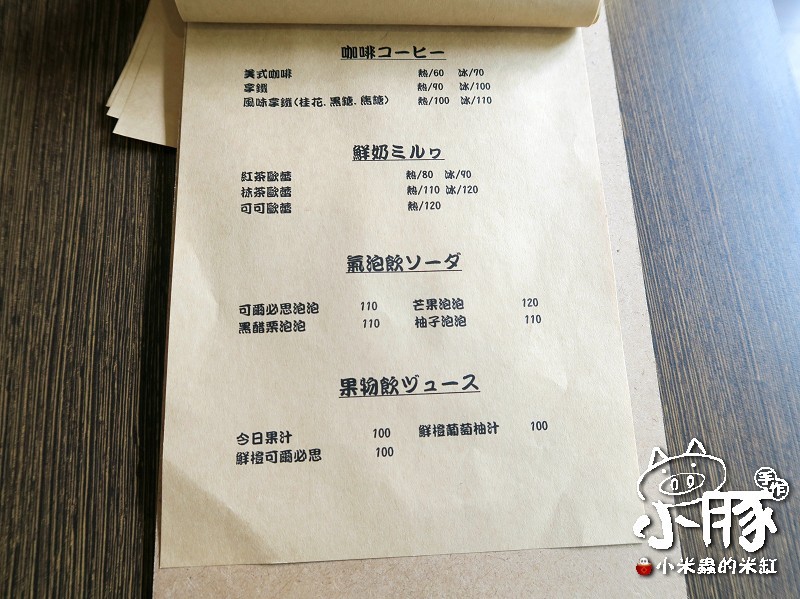 咖啡コーヒー
美式咖啡 熱/60 冰/70
拿鐵 熱/90 冰/100
風味拿鐵(桂花.黑糖.焦糖) 熱/100 冰/110
鮮奶ミルヮ
紅茶歐蕾 熱/80 冰/90
抹茶歐蕾 熱/110 冰/120
可可歐蕾 熱/120
氣泡飲ソーダ
可爾必思泡泡 110 芒果泡泡 120
黑醋栗泡泡 110 柚子泡泡 110
果物飲ヅュース
今日果汁 100 鮮橙葡萄柚汁 100
鮮橙可爾必思 100
手作
小豚
小米蟲的米缸